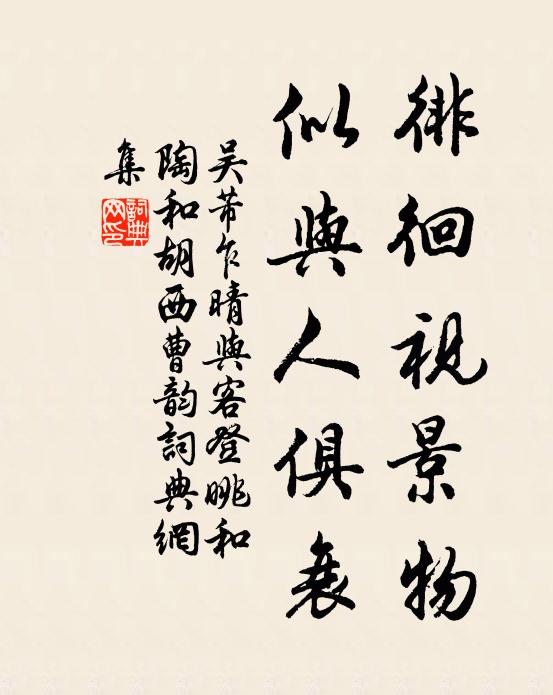 徘徊視景物
似與人俱衰
吴芾乍晴與客登眺和
陶和胡西曹韵詞典網
集
詞典網印